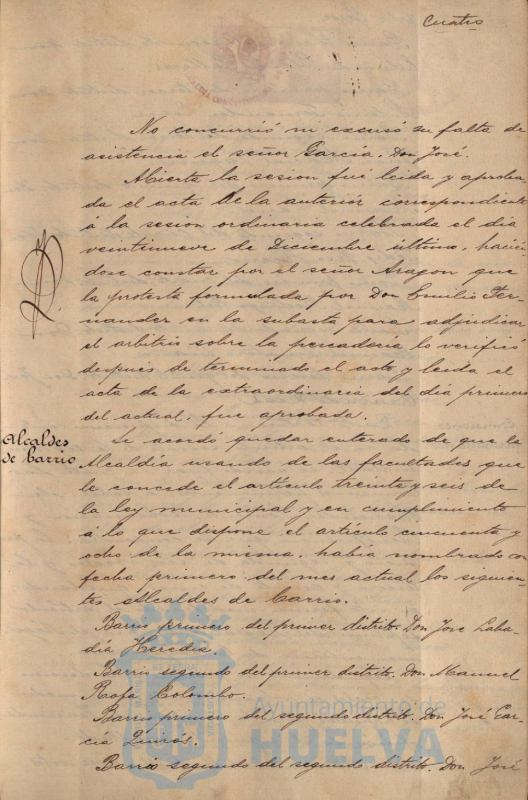 Cuatro
No concurrió ni excusó su falta de
asistencia el señor García, Don José.
Abierta la sesion fué leida y aproba
da el acta de la anterior correspondiente
á la sesion ordinaria celebrada el dia
veintinueve de Diciembre último, hacien
dose constar por el señor Aragon que
la protesta formulada por Don Emilio Fer-
nandez en la subasta para adjudicar
el arbitrio sobre la pescadería lo verificó
despues de terminado el acto y leida el
acta de la extraordinaria del dia primero
del actual, fue aprobada.
Alcaldes
de barrio
Se acordó quedar enterado de que la
Alcaldía usando de las facultades que
le concede el artículo treinta y seis de
la ley municipal y en cumplimiento
á lo que dispone el artículo cincuenta y
ocho de la misma, habia nombrado con
fecha primero del mes actual los siguien-
tes Alcaldes de barrio.
Barrio primero del primer distrito. Don José Laba-
día Heredia.
Barrio segundo del primer distrito. Don Manuel
Rofa Colombo.
Barrio primero del segundo distrito. Don José Gar
cía Quirós.
Barrio segundo del segundo distrito. Don José
Ayuntamiento de
HUELVA